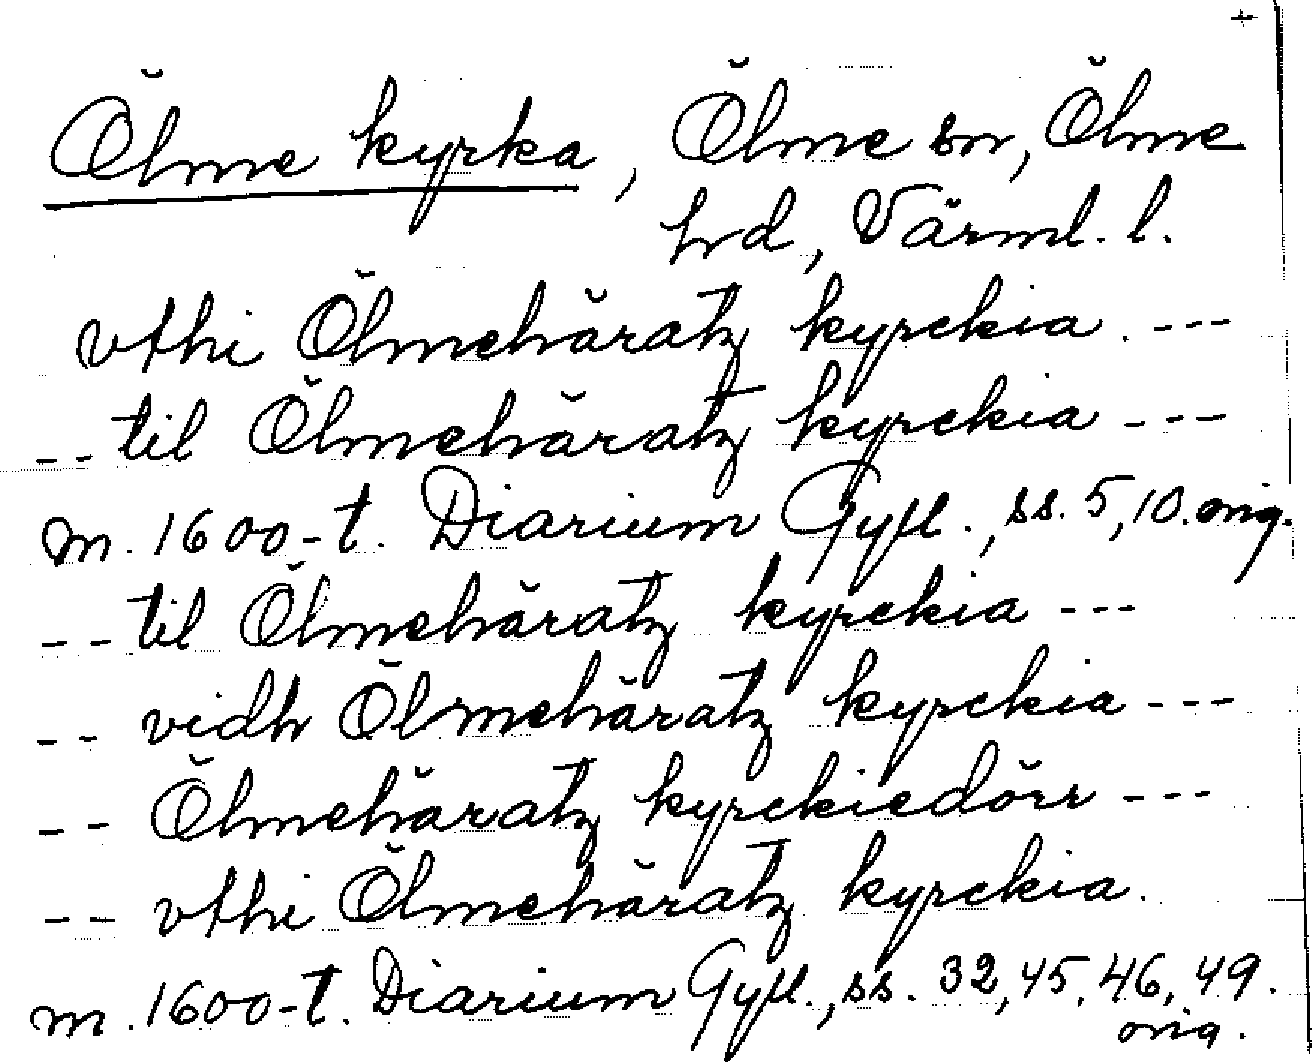 Ölme kyrka, Ölme sn, Ölme
hd, Värml. l.
vthi Ölmehäratz kyrckia. ---
-- til Ölmehäratz kyrckia ---
m. 1600-t. Diarium Gyll., ss. 5, 10. orig.
-- til Ölmehäratz kyrckia ---
-- vidh Ölmehäratz kyrckia ---
-- Ölmehäratz kyrckiedörr ---
-- vthi Ölmehäratz kyrckia.
m. 1600-t. Diarium Gyll., ss. 32, 45, 46, 49.
orig.